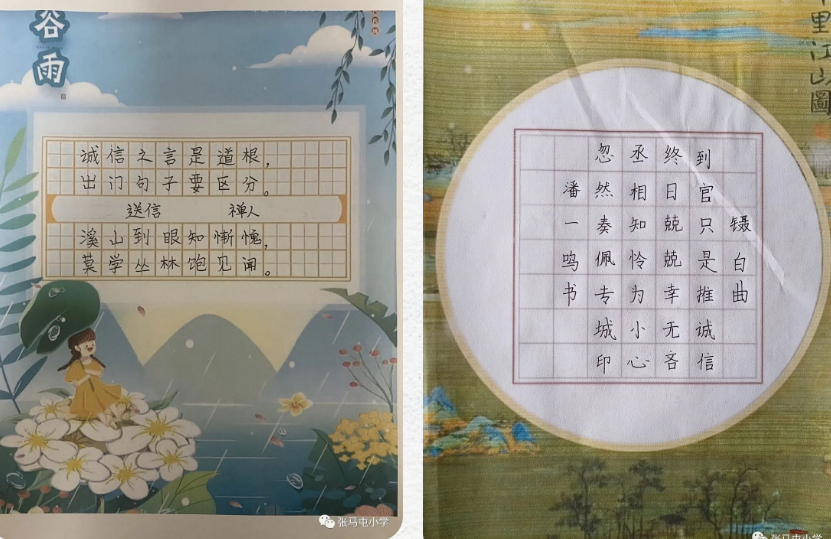 谷雨
诚信之言是道根，
出门句子要区分。
送信 禅人
溪山到眼知惭愧，
莫学丛林饱见闻。
张马屯小学
里江山圖
镊白曲
到官只是推诚信
终日兢兢幸无吝
丞相知怜为小心
忽然奏佩专城印
潘一鸣书
张马屯小学